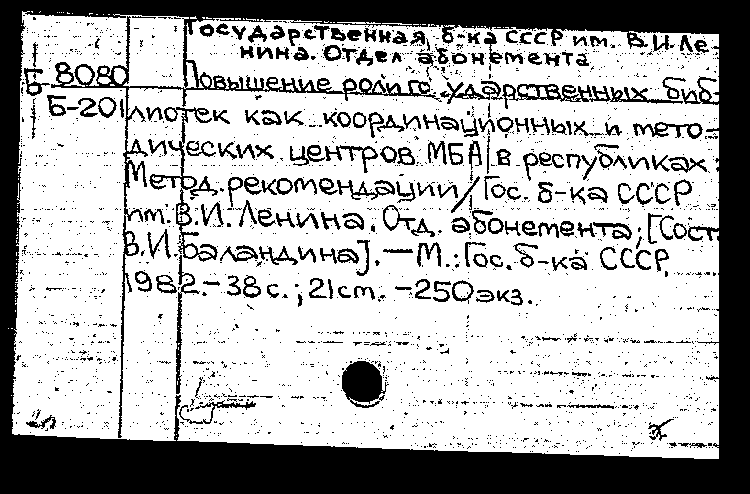 Государственная б-ка СССР им. В.И.Ле-
нина. Отдел абонемента
Б 8080 Повышение роли государственных биб-
Б-201 лиотек как координационных и мето-
дических центров МБА в республиках:
Метод. рекомендации / Гос. б-ка СССР
им. В.И. Ленина. Отд. абонемента; [Сост.
В.И. Баландина]. — М.: Гос. б-ка СССР,
1982. - 38 с. ; 21 cm. - 250 экз.